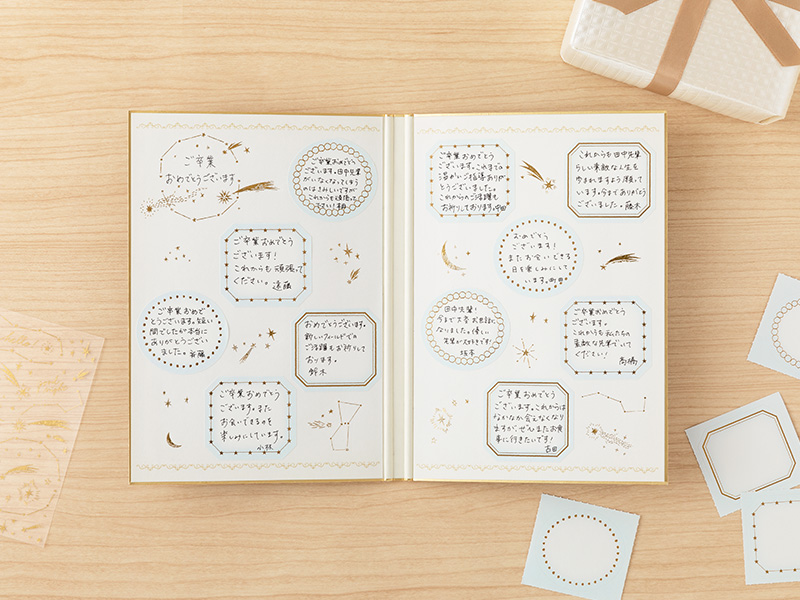 ご卒業
おめでとうございます
ご卒業おめでとう
ございます。田中先輩
がいなくなってしまう
のはさみしいですが
これからも頑張って
下さい!
ご卒業おめでとう
ございます!
これからも頑張って
ください。遠藤
ご卒業おめで
とうございます。短い
間でしたが本当に
ありがとうござい
ました。斉藤
おめでとうございます。
新しいフィールドでの
ご活躍もお祈りして
おります。
鈴木
ご卒業おめでとう
ございます。また
お会いできるのを
楽しみにしています。
小林
ご卒業おめでとう
ございます。これまでの
温かいご指導ありが
とうございました。
これからのご活躍も
お祈りしております。中田
これからも田中先輩
らしい素敵な人生を
歩まれますよう願って
います。今までありがとう
ございました。藤木
おめでとう
ございます!
またお会いできる
日を楽しみにして
います。
田中先輩!
今まで大変お世話に
なりました。優しい
先輩が大好きです!
坂本
ご卒業おめでとう
ございます。
これからも私たちの
素敵な先輩でいて
ください!
高橋
ご卒業おめでとう
ございます。これからは
なかなか会えなくなり
ますが、ぜひまたお食
事に行きたいです!
吉田